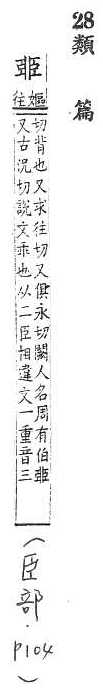 28類篇
臦
嫗往
切背也又求往切又俱永切闕人名周有伯臦
又古況切說文乖也从二臣相違文一重音三
（臣部·P104）